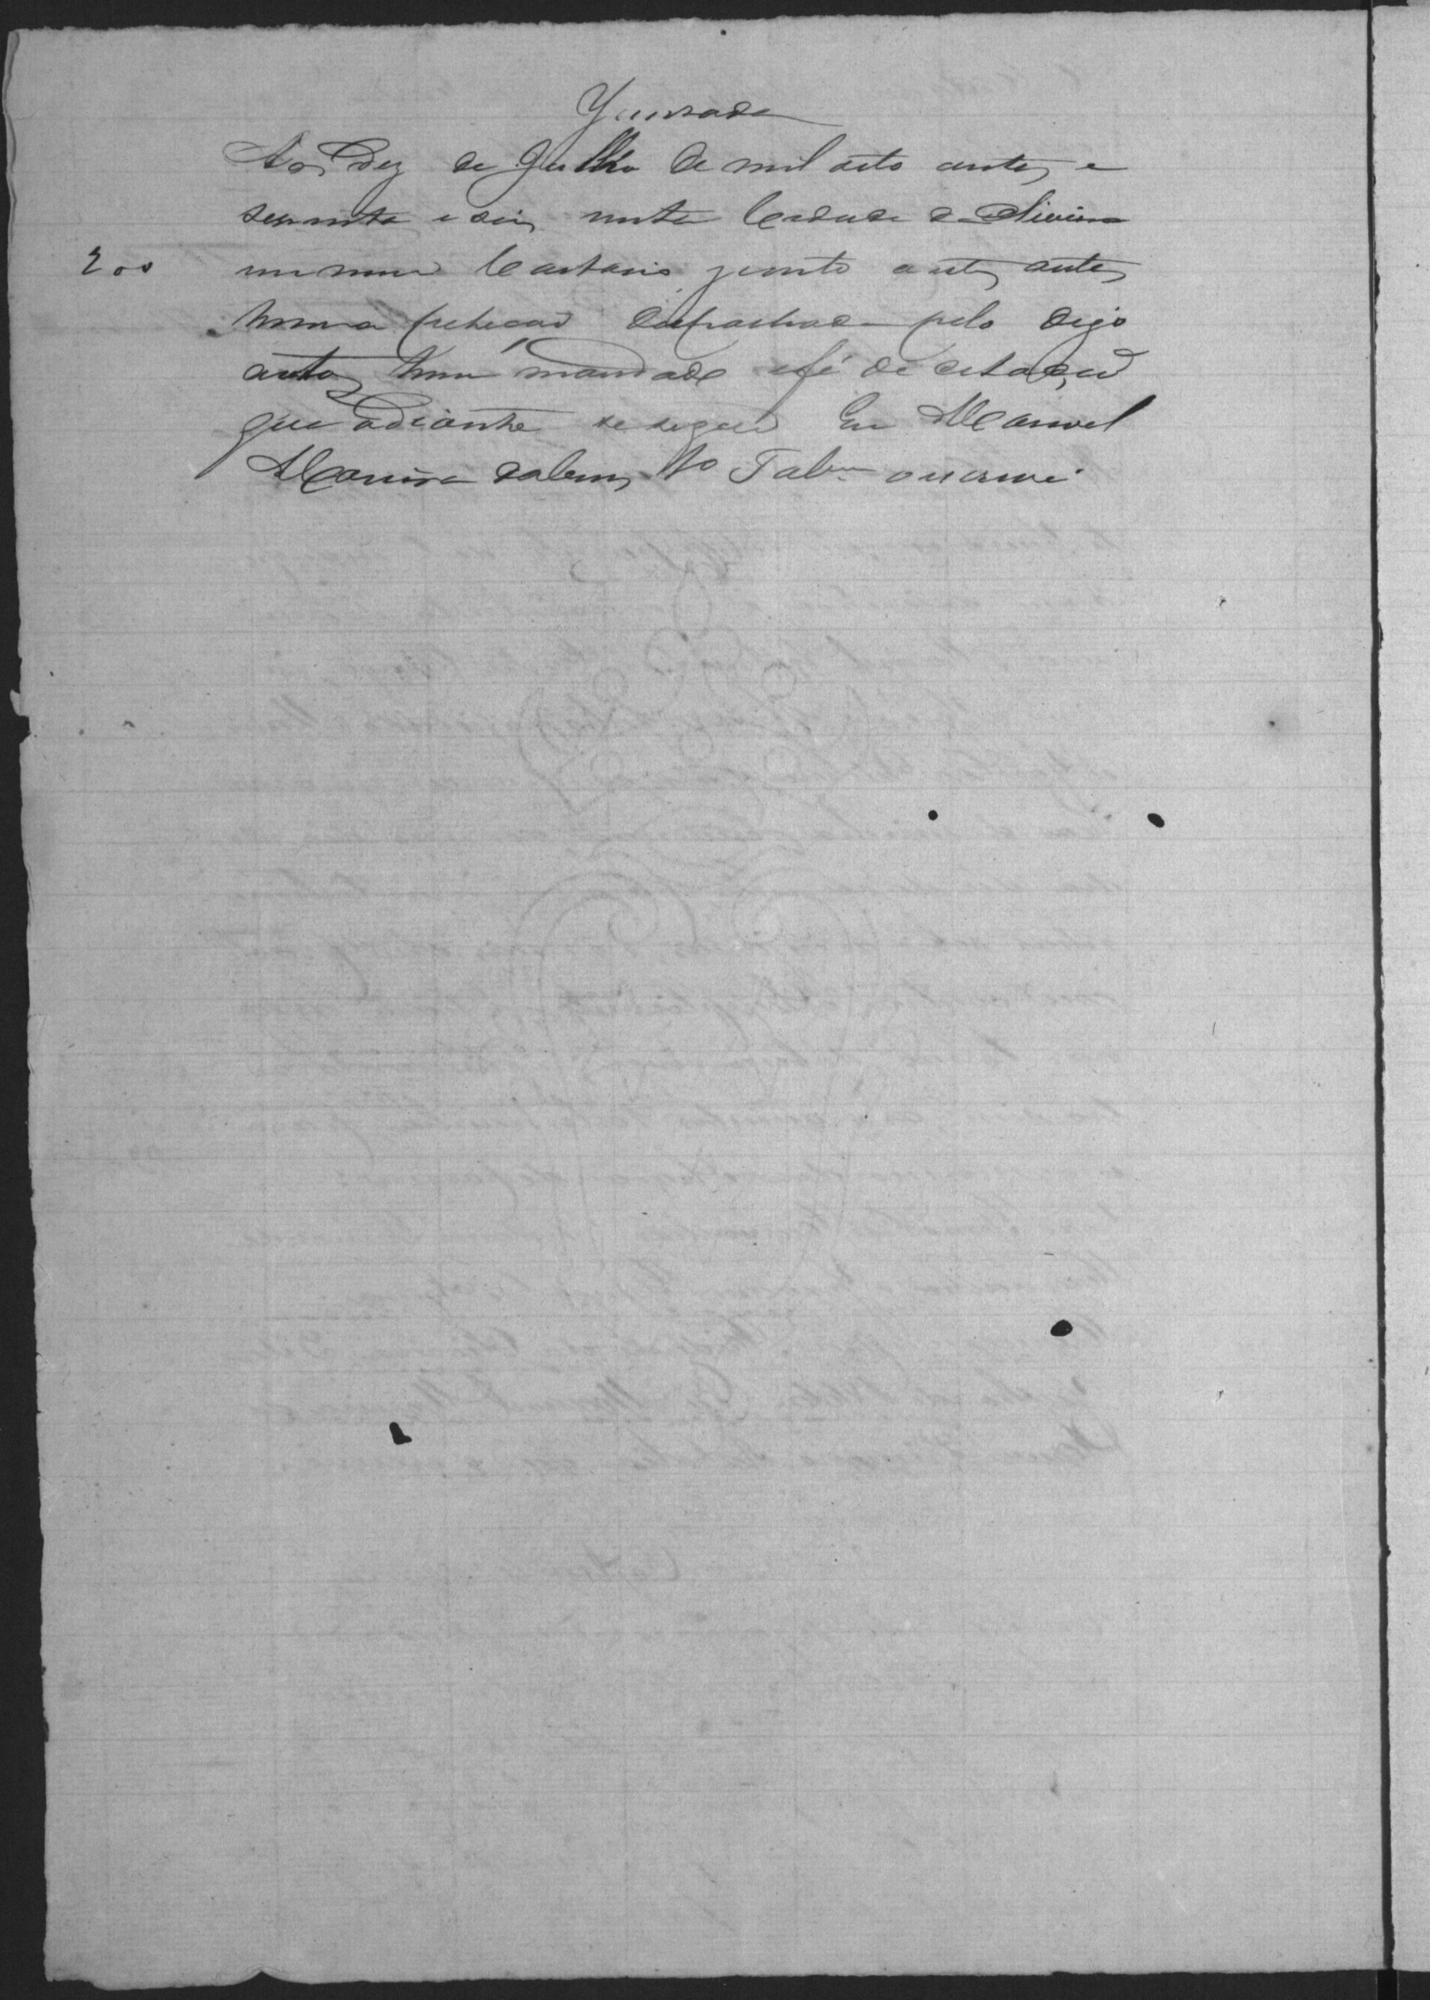 Juntada
Aos dez de Julho de mil oito centos e
sessenta e seis nesta Cidade de Oliveira
200 em meu Cartorio junto a estes autos
huma petição despachada pelo digo
autos hum mandado e fé de citação
que adiante se segue Eu Manoel
Tabam o escrevi